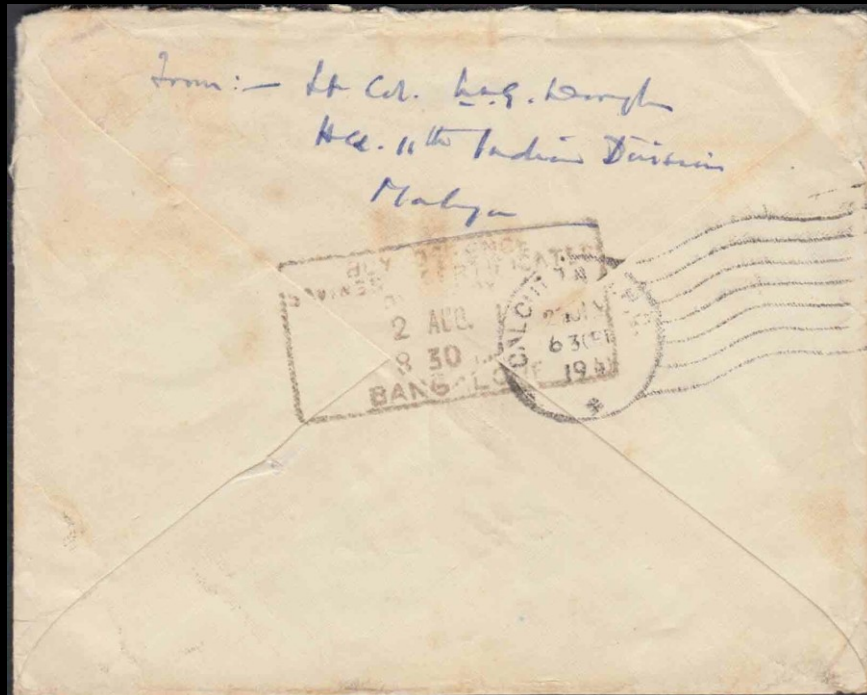 From:— Lt Col.
HQ. 11th Indian Division
Malaya
BUY DEFENCE
SAVINGS CERTIFICATES
2 AUG.
8 30
BANGALORE
CALCUTTA
6 30 PM